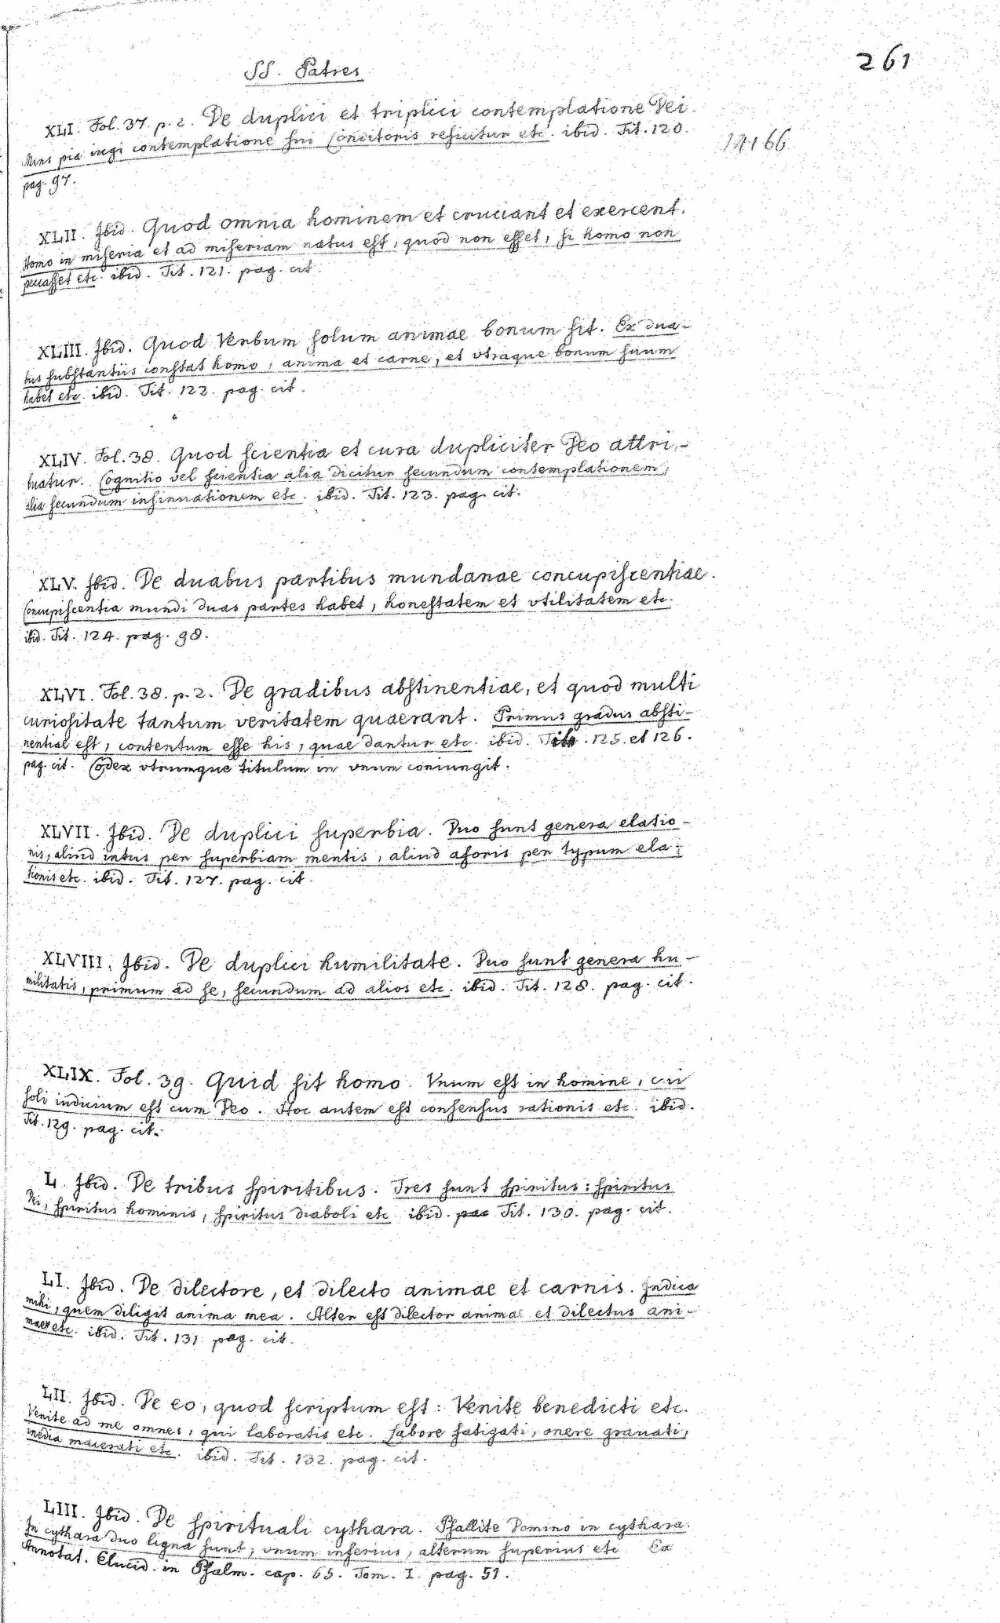 261
SS. Patres
XLI. Fol. 37. p. 2. De duplici et triplici contemplatione Dei.
Mens pia iugi contemplatione sui Conditoris reficitur etc. ibid. Tit. 120.
14166
pag. 97.
XLII. Ibid. Quod omnia hominem et cruciant et exercent.
Homo in miseria et ad miseriam natus est, quod non esset, si homo non
peccasset etc. ibid. Tit. 121. pag. cit.
XLIII. Ibid. Quod Verbum solum animae bonum sit. Ex dua-
bus substantiis constat homo, anima et carne, et vtraque bonum suum
habet etc. ibid. Tit. 122. pag. cit.
XLIV. Fol. 38. Quod scientia et cura dupliciter Deo attri-
buatur. Cognitio vel scientia alia dicitur secundum contemplationem,
alia secundum insinuationem etc. ibid. Tit. 123. pag. cit.
XLV. Ibid. De duabus partibus mundanae concupiscentiae.
Concupiscentia mundi duas partes habet, honestatem et vtilitatem etc.
ibid. Tit. 124. pag. 98.
XLVI. Fol. 38. p. 2. De gradibus abstinentiae, et quod multi
curiositate tantum veritatem quaerant. Primus gradus absti-
nentiae est, contentum esse his, quae dantur etc. ibid. Tit. 125. et 126.
pag. cit. Codex vtrumque titulum in vnum coniungit.
XLVII. Ibid. De duplici superbia. Duo sunt genera elatio-
nis, aliud intus per superbiam mentis, aliud aforis per typum ela-
tionis etc. ibid. Tit. 127. pag. cit.
XLVIII. Ibid. De duplici humilitate. Duo sunt genera hu-
militatis, primum ad se, secundum ad alios etc. ibid. Tit. 128. pag. cit.
XLIX. Fol. 39. Quid sit homo. Vnum est in homine, cui
soli iudicium est cum Deo. Hoc autem est consensus rationis etc. ibid.
Tit. 129. pag. cit.
L. Ibid. De tribus spiritibus. Tres sunt spiritus: spiritus
Dei, spiritus hominis, spiritus diaboli etc. ibid. Tit. 130. pag. cit.
LI. Ibid. De dilectore, et dilecto animae et carnis. Indica
mihi, quem diligit anima mea. Alter est dilector animae et dilectus ani-
mae etc. ibid. Tit. 131. pag. cit.
LII. Ibid. De eo, quod scriptum est: Venite benedicti etc.
Venite ad me omnes, qui laboratis etc. Labore fatigati, onere grauati,
inedia macerati etc. ibid. Tit. 132. pag. cit.
LIII. Ibid. De spirituali cythara. Psallite Domino in cythara.
In cythara duo ligna sunt, vnum inferius, alterum superius etc. Ex
Annotat. Elucid. in Psalm. cap. 65. Tom. I. pag. 51.